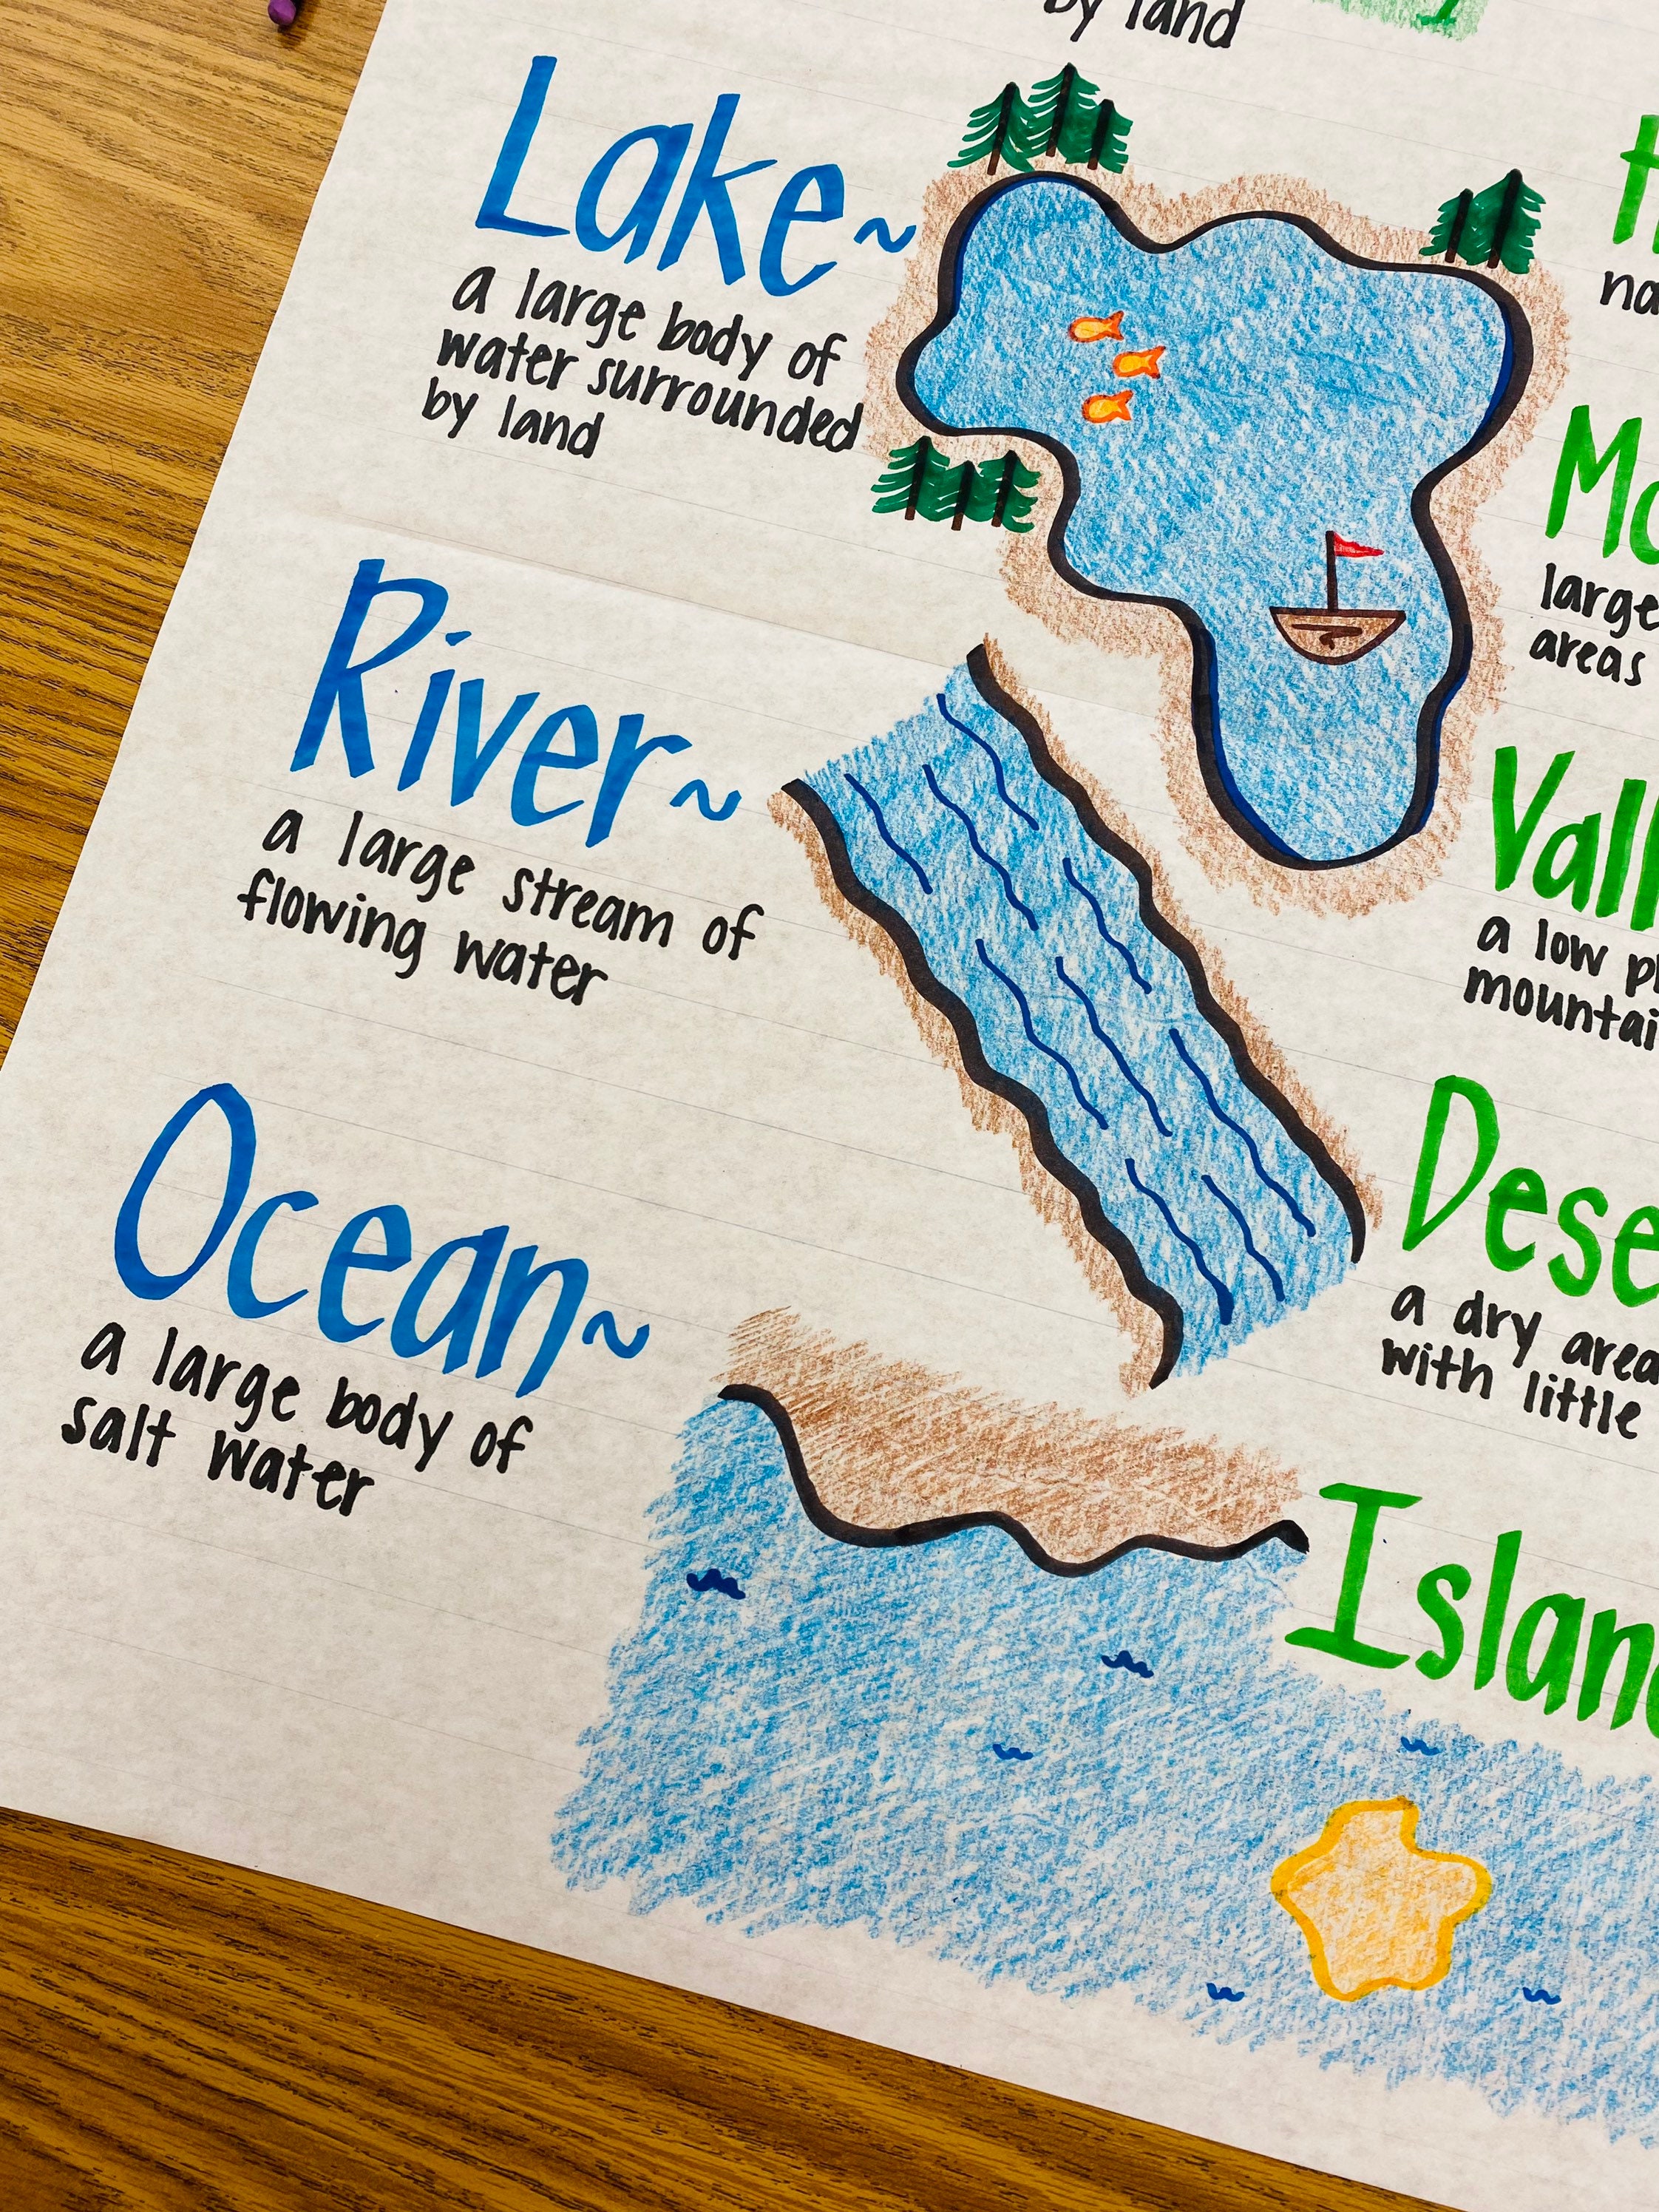 by land
Lake~
a large body of
water surrounded
by land
River~
a large stream of
flowing water
Ocean~
a large body of
salt water
large
areas
Vall
a low
mountai
Dese
a dry area
with little
Islan